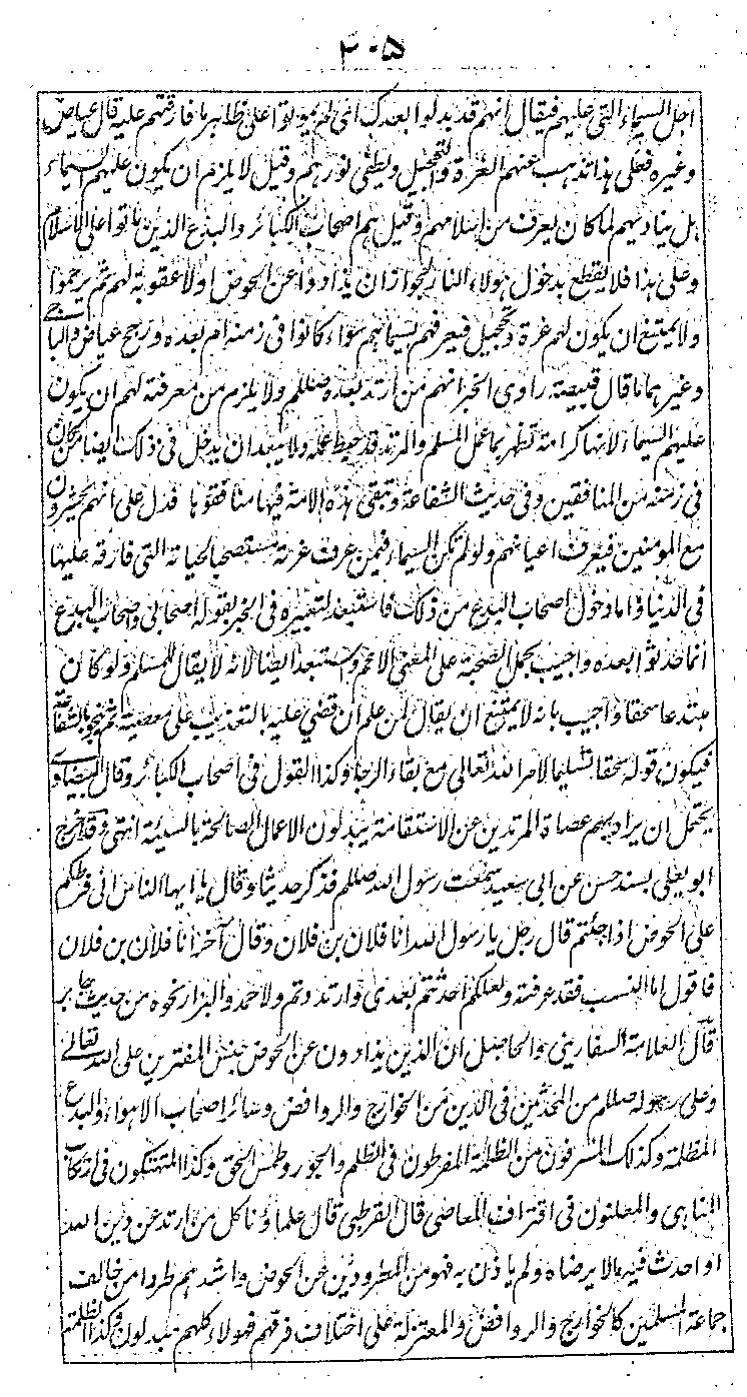 ۳۰۵
اجل السیماء التی علیهم فیقال انهم قد بدلوا بعدک ای لم یموتوا علی ظاهر ما فارقتهم علیه قال عیاض
وغیره فعلی هذا تذهب عنهم الغرة والتحجیل ویطفی نورهم وقیل لا یلزم ان یکون علیهم السیماء
بل ینادیهم لما کان یعرف من اسلامهم وقیل هم اصحاب الکبائر والبدع الذین ماتوا علی الاسلام
وعلی هذا فلا یقطع بدخول هولاء النار لجواز ان یذادوا عن الحوض اولا عقوبة لهم ثم یرحموا
ولا یمتنع ان یکون لهم غرة وتحجیل فیعرفهم بسیماهم سواء کانوا فی زمنه ام بعده ورجح عیاض والباجی
وغیرهما ما قال قبیصة راوی الخبر انهم من ارتد بعده صللم ولا یلزم من معرفته لهم ان یکون
علیهم السیماء لانها کرامة تظهر بها عمل المسلم والمرتد قد حبط عمله ولا یبعد ان یدخل فی ذلک ایضا من کان
فی زمنه من المنافقین وفی حدیث الشفاعة وتبقی هذه الامة فیها منافقوها فدل علی انهم یحشرون
مع المومنین فیعرف اعیانهم ولو لم تکن السیماء فمن عرف غرته مستصحبا لحیاته التی فارقه علیها
فی الدنیا واما دخول اصحاب البدع من ذلک فاستبعد لتعبیره فی الخبر بقوله اصحابی واصحاب البدع
انما حدثوا بعده واجیب بحمل الصحبة علی المعنی الاعم واستبعد ایضا لانه لا یقال للمسلم ولو کان
مبتدعا سحقا واجیب بانه لا یمتنع ان یقال لمن علم ان قضی علیه بالتعذیب علی معصیة ثم ینجو بالشفاعة
فیکون قوله سحقا تسلیما لامر الله تعالی مع بقاء الرجا وکذا القول فی اصحاب الکبائر وقال البیضاوی
یحتمل ان یراد بهم عصاة المرتدین عن الاستقامة یبدلون الاعمال الصالحة بالسیئة انتهی وقد اخرج
ابو یعلی بسند حسن عن ابی سعید سمعت رسول الله صللم فذکر حدیثا وقال یا ایها الناس انی فرطکم
علی الحوض اذا جئتم قال رجل یا رسول الله انا فلان بن فلان وقال آخر انا فلان بن فلان
فاقول اما النسب فقد عرفته ولعلکم احدثتم بعدی وارتددتم ولاحمد والبزار نحوه من حدیث جابر
قال العلامة السفارینی والحاصل ان الذین یذادون عن الحوض جنس المفترین علی الله تعالی
وعلی رسوله صللم من المحدثین فی الدین من الخوارج والروافض وسائر اصحاب الاهواء والبدع
المظلمة وکذلک المسرفون من الظلمة المفرطون فی الظلم والجور وطمس الحق وکذا المتهتکون فی ارتکاب
المناهی والمعلنون فی اقتراف المعاصی قال القرطبی قال علماؤنا کل من ارتد عن دین الله
او احدث فیه ما لا یرضاه ولم یاذن به فهو من المطرودین عن الحوض واشدهم طردا من خالف
جماعة المسلمین کالخوارج والروافض والمعتزلة علی اختلاف فرقهم فهولاء کلهم مبدلون وکذا الظلمة